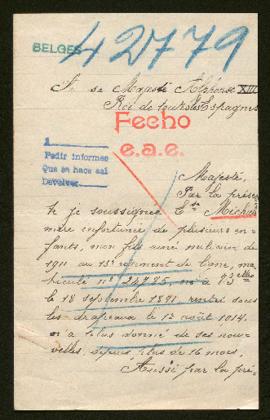 BELGES
42779
A sa Majesté Alphonse XIII
Roi de toutes les Espagnes
Fecho
e.a.e.
1
Pedir informes
Que se hace así
Devolver
Majesté,
Par la présen
te je soussignée Ese Michiels
mère infortunée de plusieurs en-
fants, mon fils ainé milicien de
1911 au 13e régiment de ligne, ma-
tricule no né à
le 18 septembre 1891, rentré sous
les drapeaux le 1e août 1914.
n'a plus donné de ses nou-
velles depuis plus de 16 mois.
Aussi par la pré-